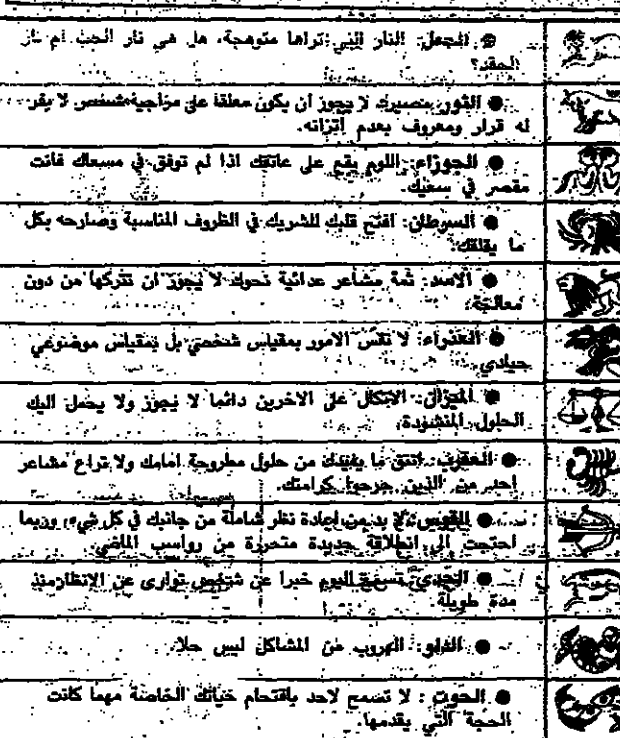 ● الحمل: النار التي تراها متوهجة، هل هي نار الحب ام نار
الحقد؟
● الثور: مصيرك لا يجوز ان يكون معلقا على مزاجية شخص لا يقر
له قرار ومعروف بعدم إتزانه.
● الجوزاء: اللوم يقع على عاتقك اذا لم توفق في مسعاك فأنت
مقصر في سعيك.
● السرطان: افتح قلبك للشريك في الظروف المناسبة وصارحه بكل
ما يقلقك.
● الاسد: ثمة مشاعر عدائية نحوك لا يجوز ان تتركها من دون
معالجة.
● العذراء: لا تقس الامور بمقياس شخصي بل بمقياس موضوعي
حيادي.
● الميزان: الاتكال على الاخرين دائما لا يجوز ولا يحمل اليك
الحلول المنشودة.
● العقرب: انتق ما يفيدك من حلول مطروحة امامك ولا تراع مشاعر
احد من الذين جرحوا كرامتك.
● القوس: لا بد من إعادة نظر شاملة من جانبك في كل شيء، وربما
احتجت الى انطلاقة جديدة متحررة من رواسب الماضي.
● الجدي: تسمع اليوم خبرا عن شخص توارى عن الانظار منذ
مدة طويلة.
● الدلو: الهروب من المشاكل ليس حلا.
● الحوت : لا تسمح لاحد باقتحام حياتك الخاصة مهما كانت
الحجة التي يقدمها.